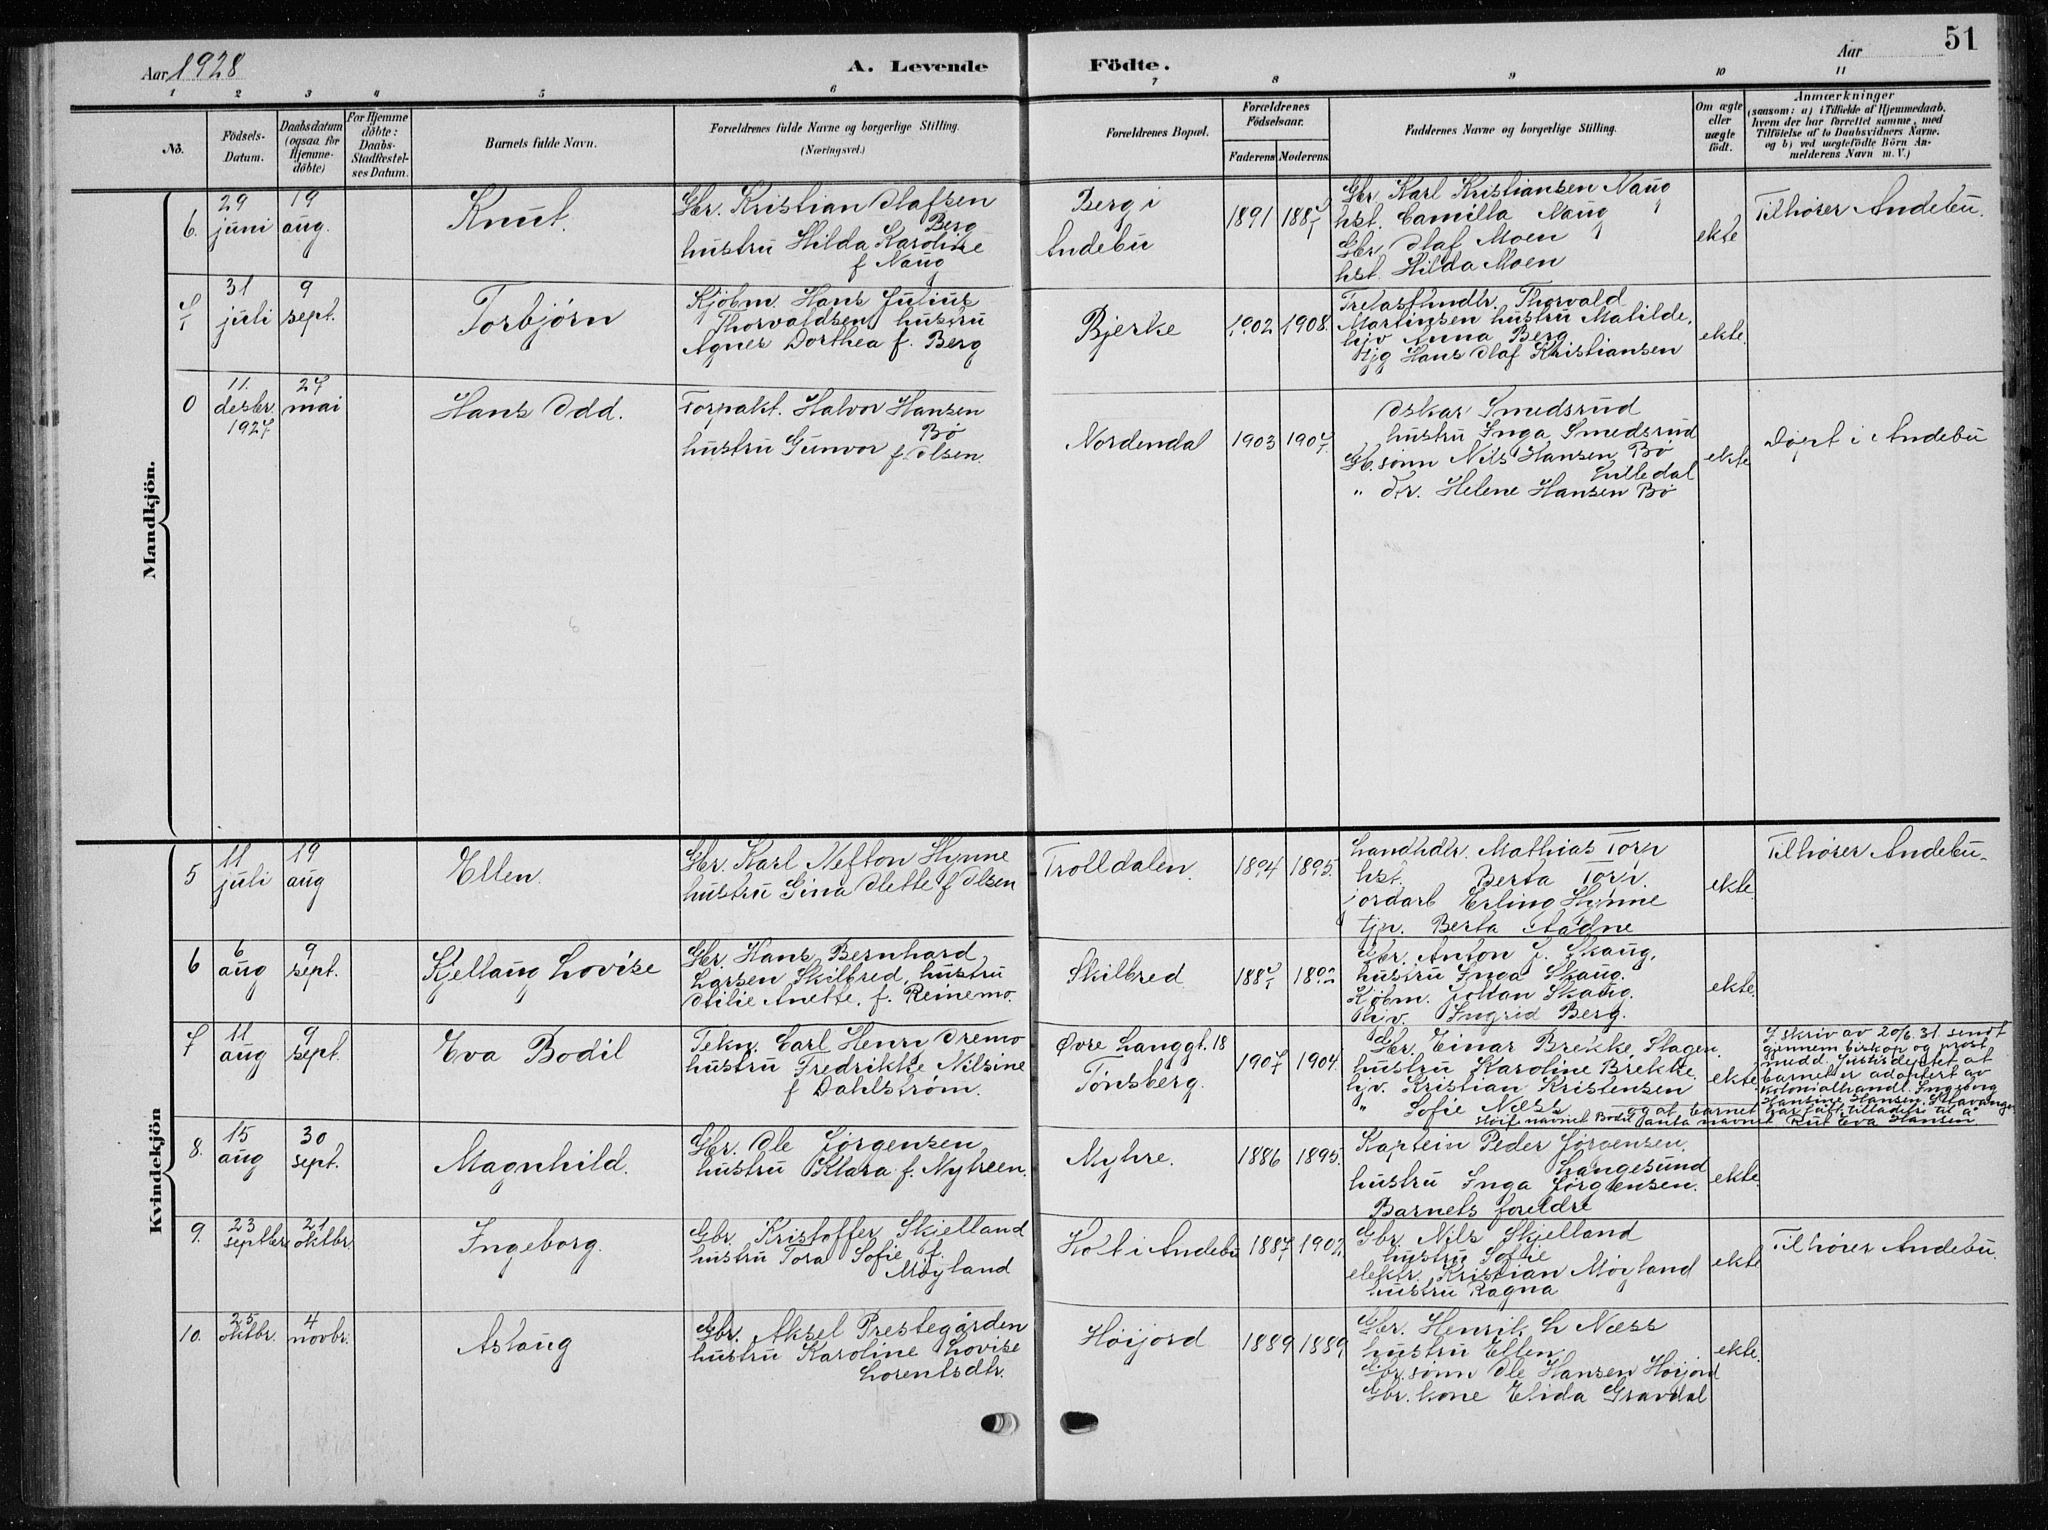 Aar 1928
A. Levende
Födte.
Aar
51
1 2 3 4 5 6 7 8 9 10 11
No.
Födsels-
Datum.
Daabsdatum
(ogsaa for
Hjemme-
döbte)
For Hjemme
döbte:
Daabs-
Stadfæstel-
ses Datum.
Barnets fulde Navn.
Forældrenes fulde Navne og borgerlige Stilling.
(Næringsvei.)
Forældrenes Bopæl.
Forældrenes
Födselsaar.
Faderens.
Moderens.
Faddernes Navne og borgerlige Stilling.
Om ægte
eller
uægte
født.
Anmærkninger
(saasom: a) i Tilfælde af Hjemmedaab,
hvem der har forrettet samme, med
Tilföielse af to Daabsvidners Navne.
og b) ved uægtefödte Börn An-
melderens Navn m. V.)
Mandkjön.
6.
29
juni
19
aug.
Knut.
Gbr. Kristian Olafsen
Berg
hustru Hilda Karoline
f Naug
Berg i
Andebu
1891
1887
Gbr. Karl Kristiansen Naug
hst. Camilla Naug
Gbr. Olaf Moen
hst. Hilda Moen
ekte
Tilhører Andebu.
7
31
juli
9
sept.
Torbjørn
Kjøbm. Hans Julius
Thorvaldsen hustru
Agnes Dorthea f. Berg
Bjerke
1902
1908.
Trelasthndlr. Thorvald
Martinsen hustru Matilde.
hjv Anna Berg
Hans Olaf Kristiansen
ekte.
0
11.
desbr.
1927.
27
mai
Hans Odd.
Forpakt. Halvor Hansen
Bø
hustru Gunvor f. Olsen.
Nordendal
1903
1907
Oskar Smedsrud
hustru Inga Smedsrud
Gb.sønn Nils Hansen Bø
Lilledal
" dtr. Helene Hansen Bø
ekte
Døpt i Andebu
Kvindekjön
5
11
juli
19
aug
Ellen.
Gbr. Karl Nefton Hynne
hustru Gina Olette f Olsen
Trolldalen.
1894
1895.
Landhdlr. Mathias Torp
hst. Berta Torp.
jordarb Erling Hynne
tjp. Berta Aadne
ekte.
Tilhører Andebu.
6
6
aug
9
sept.
Kjellaug Lovise
Gbr. Hans Bernhard
Larsen Skilbred, hustru
Otilie Anette. f. Reinemo.
Skilbred
1887
Gbr. Anton J. Skaug,
hustru Inga Skaug.
Kjøbm. Johan Skaug.
hjv. Ingrid Berg.
ekte.
7
11
aug
9
sept.
Eva Bodil
Tekn. Carl Henri Dremo
hustru Fredrikke Nilsine
f Dahlstrøm.
Øvre Langgt. 18
Tønsberg.
1907
1904.
Gbr. Einar Brekke, Slagen.
hustru Karoline Brekke.
hjv. Kristian Kristensen
" Sofie Næss
ekte.
I skriv av 20/6.31 sendt
gjennem biskop og prost
medd. Justisdeptet at
barnet er adoptert av
kolonialhandl. Ingeborg
Hansine Hansen, Stavanger
og at barnet har fått tilladelse til å
sløife navnet Bodil anta navnet Rut Eva Hansen
8.
15
aug
30
sept.
Magnhild.
Gbr. Ole Jørgensen,
hustru Klara f. Myhreen.
Myhre.
1886
1895.
Kaptein Peder Jørgensen.
Langesund
hustru Inga Jørgensen.
Barnets foreldre
ekte.
9.
23
septbr
21
oktbr
Ingeborg.
Gbr. Kristoffer Skjelland
hustru Tora Sofie f.
Møyland
Holt i Andebu
1887
1902.
Gbr. Nils Skjelland
hustru Sofie
elektr. Kristian Møyland
hustru Ragna
ekte
Tilhører Andebu.
10.
25
oktbr.
4
novbr.
Aslaug
Gbr. Aksel Prestegården
hustru Karoline Lovise
Lorentsdtr.
Høijord
1889
1889
Gbr. Henrik L Næss
hustru Ellen
Gbr.sønn Ole Hansen Høijord
Gbr. kone Elida Gravdal
ekte.